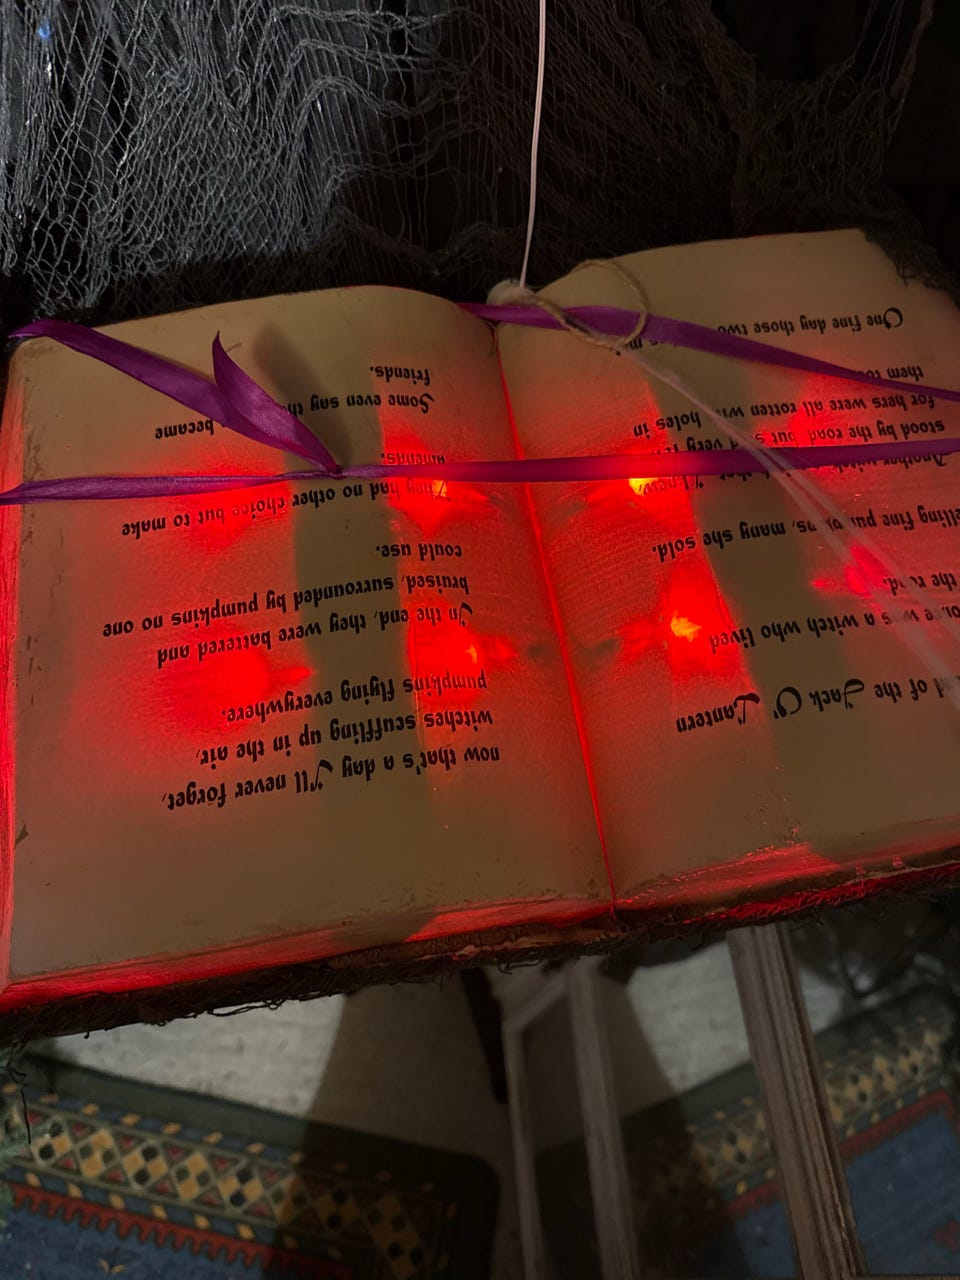 d of the Jack O' Lantern
was a witch who lived
the road.
elling fine pum ns, many she sold.
Another witch knew,
stood by the road but s very f
for hers were all rotten with holes in
them too
One fine day those two
now that's a day I'll never forget,
witches scuffling up in the air,
pumpkins flying everywhere.
In the end, they were battered and
bruised, surrounded by pumpkins no one
could use.
They had no other choice but to make
amends.
Some even say th became
friends.